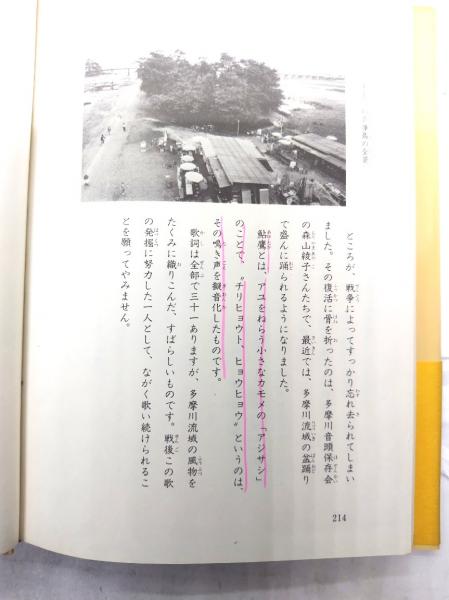 ところが、戦争によってすっかり忘れ去られてしまい
ました。その復活に骨を折ったのは、多摩川音頭保存会
の森山綾子さんたちで、最近では、多摩川流域の盆踊り
で盛んに踊られるようになりました。
鮎鷹とは、アユをねらう小さなカモメの「アジサシ」
のことで、〝チリヒョウト、ヒョウヒョウ〟というのは、
その鳴き声を擬音化したものです。
歌詞は全部で三十一ありますが、多摩川流域の風物を
たくみに織りこんだ、すばらしいものです。戦後この歌
の発掘に努力した一人として、ながく歌い続けられるこ
とを願ってやみません。
214